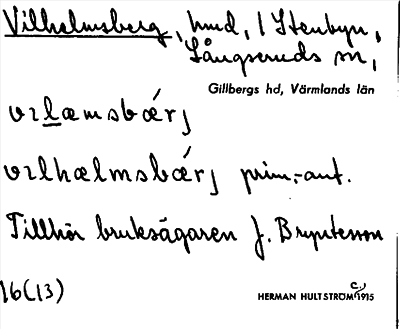 Vilhelmsberg, hmd, i Stenbyn,
Långseruds sn,
Gillbergs hd, Värmlands län
vɪlæmsbǽrj
vɪlhælmsbǽrj prim.-aut.
Tillhör bruksägaren J. Bryntesson
16(13)
HERMAN HULTSTRÖM C:a 1915